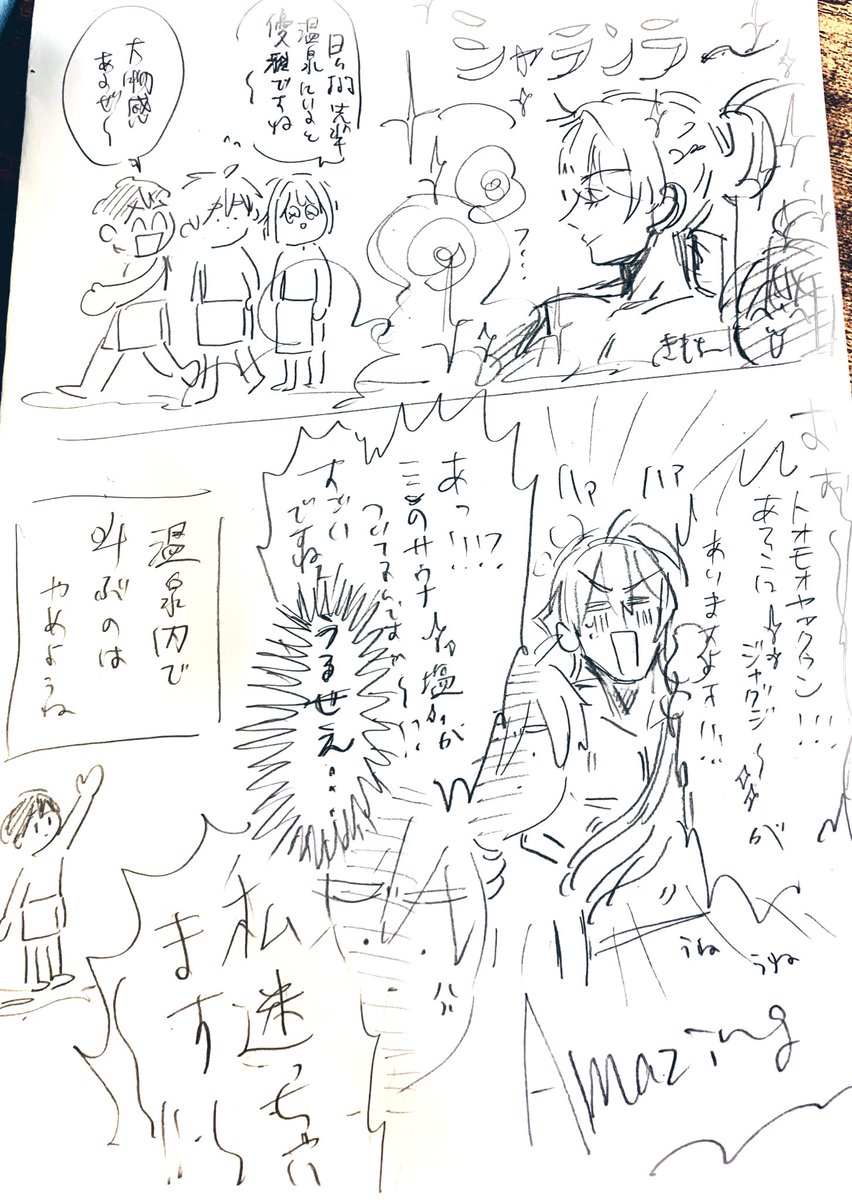 シャランラ〜
日々樹先輩
温泉にいると
優雅ですね
〜
大物感
あるぜ〜
フ…
きもちー
トオモオヤアクゥン!!!
あそこにジャグジ〜が
ありますよォ!!!
ハァ
ハァ
あっ!!!?
このサウナ塩が
ついてるんですか〜!?
すごい
ですねェ
うるせえ…
温泉内で
叫ぶのは
やめようね
うね
うね
Amazing
私迷っちゃい
ます